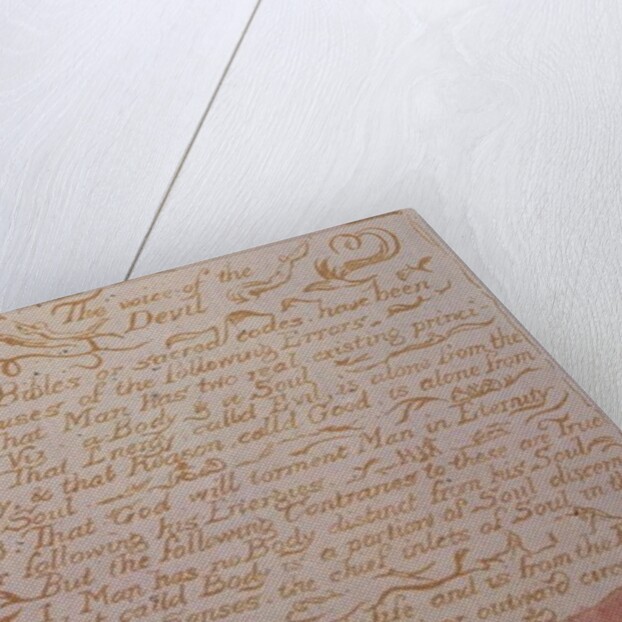 The voice of the
Devil
Bibles or sacred codes. have been
uses of the following Errors.
hat Man has two real existing princi
Viz a Body & a Soul
That Energy calld Evil. is alone from the
y. & that Reason. calld Good. is alone from
Soul
That God will torment Man in Eternity
following his Energies
But the following Contraries to these are True
Man has no Body distinct from his Soul
calld Body is a portion of Soul discern
Senses. the chief inlets of Soul in th
life and is from the B
or outward circ